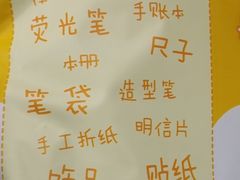 荧光笔 手账本
尺子
本册
造型笔
笔袋
明信片
手工折纸
饰品
贴纸